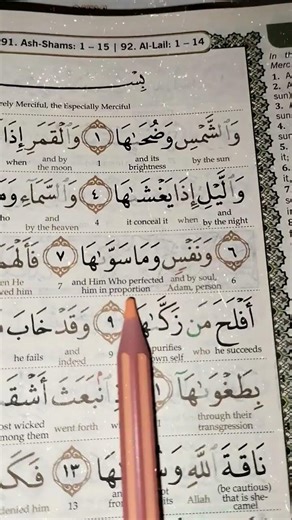 91. Ash-Shams: 1 – 15 | 92. Al-Lail: 1 – 14
بِسْ
erely Merciful, the Especially Merciful
وَالشَّمْسِ وَضُحَىٰهَا ١ وَالْقَمَرِ إِذَا
when and by the moon 1 and its brightness by the sun
وَالَّيْلِ إِذَا يَغْشَىٰهَا ٤ وَالسَّمَاءِ
and by the heaven 4 it conceal it when and by the night
٦ وَنَفْسٍ وَمَا سَوَّىٰهَا ٧ فَأَلْهَمَ
7 and Him Who perfected him in proportion and by soul, Adam, person 6
أَفْلَحَ مَن زَكَّىٰهَا ٩ وَقَدْ خَابَ
he fails and indeed 9 purifies own self who he succeeds
بِطَغْوَىٰهَا ١١ إِذِ انۢبَعَثَ أَشْقَ
most wicked among them went forth through their transgression
نَاقَةَ اللَّهِ وَسُقْيَـٰهَا ١٣ فَكَ
denied him 13 its Allah (be cautious) that is she-camel